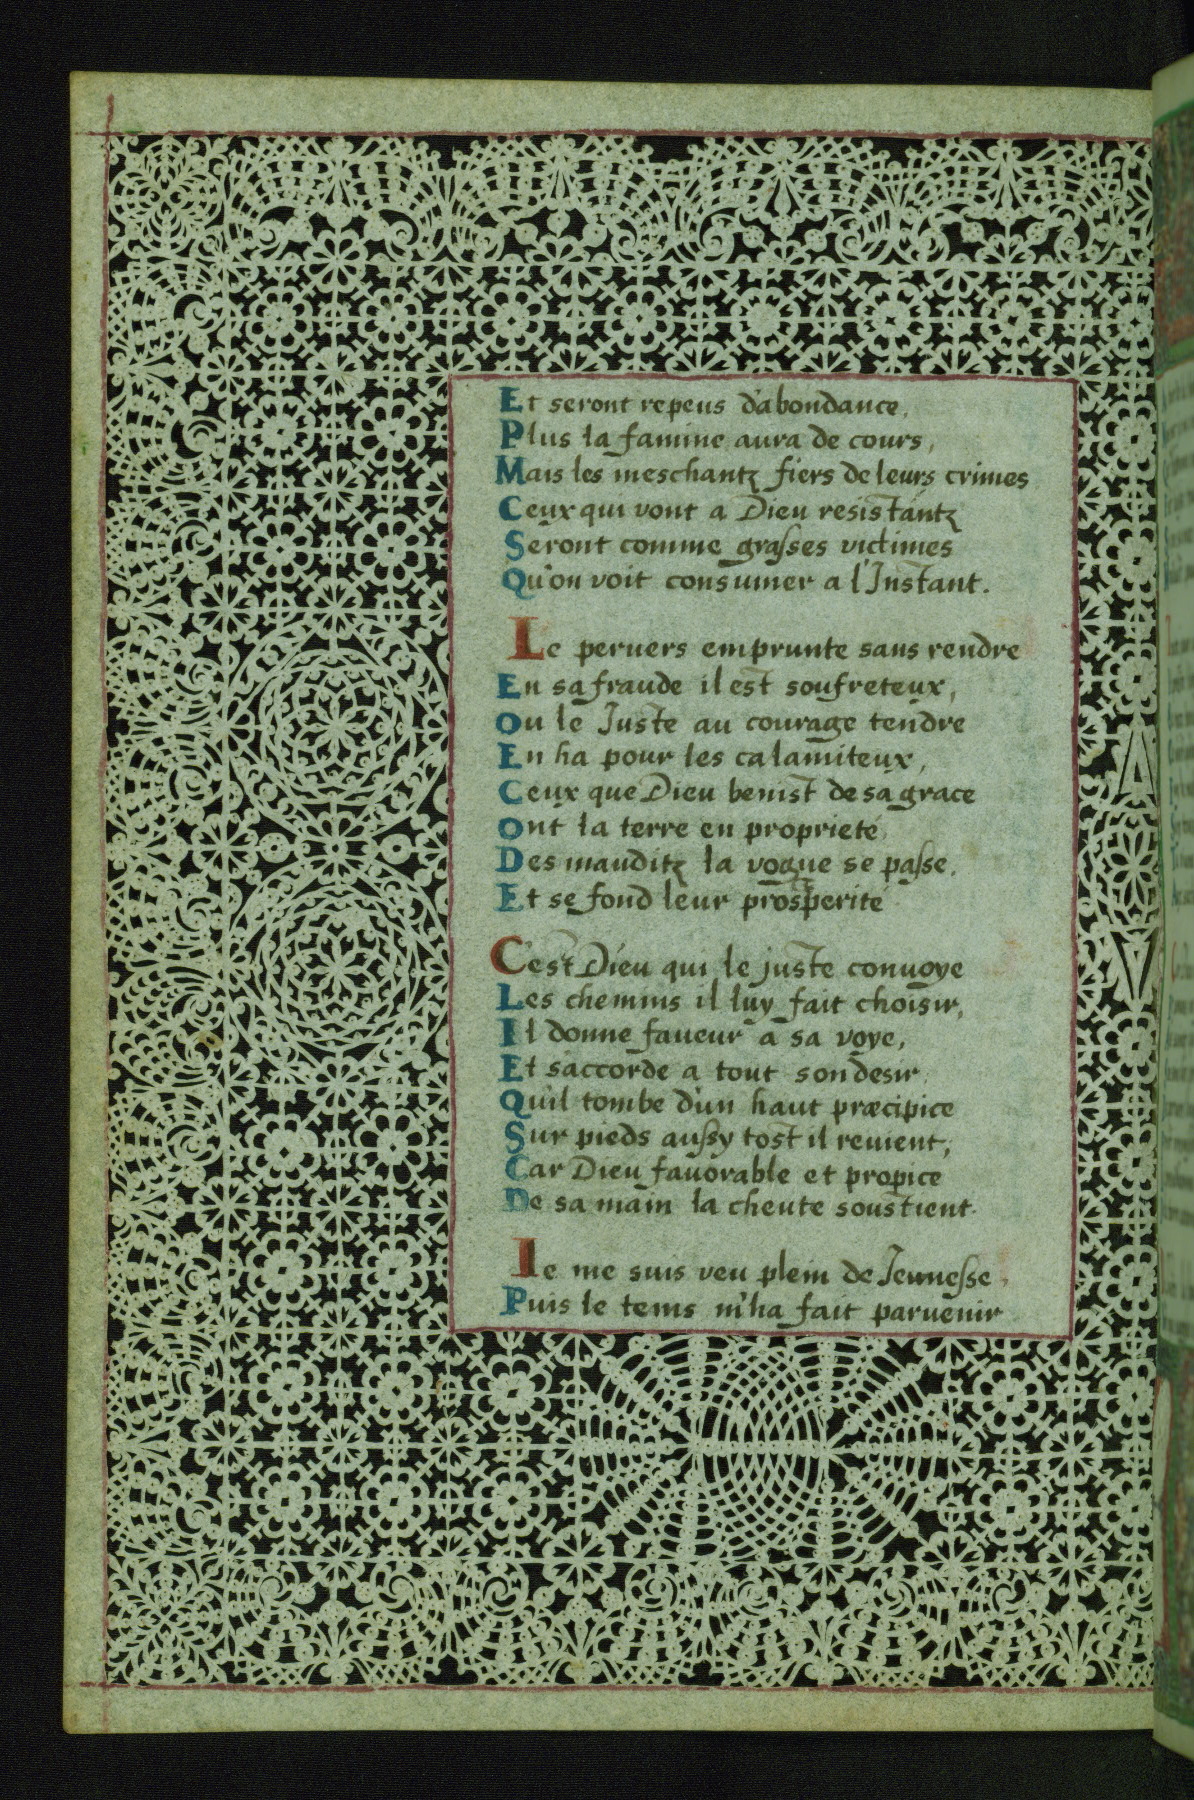 Et seront repeus d'abondance,
Plus la famine aura de cours,
Mais les meschantz fiers de leurs crimes
Ceux qui vont a Dieu resistantz
Seront comme graſses victimes
Qu'on voit consumer a l'Instant.
Le peruers emprunte sans rendre
En sa fraude il est soufreteux,
Ou le Juste au courage tendre
En ha pour les calamiteux,
Ceux que Dieu benist de sa grace
Ont la terre en proprieté
Des mauditz la vogue se paſse,
Et se fond leur prosperité
C'est Dieu qui le juste conuoye
Les chemins il luy fait choisir,
Il donne faueur a sa voye,
Et s'accorde a tout son desir
Qu'il tombe d'un haut præcipice
Sur pieds auſsy tost il reuient,
Car Dieu fauorable et propice
De sa main la cheute soustient.
Ie me suis veu plein de Jeuneſse,
Puis le tems m'ha fait paruenir